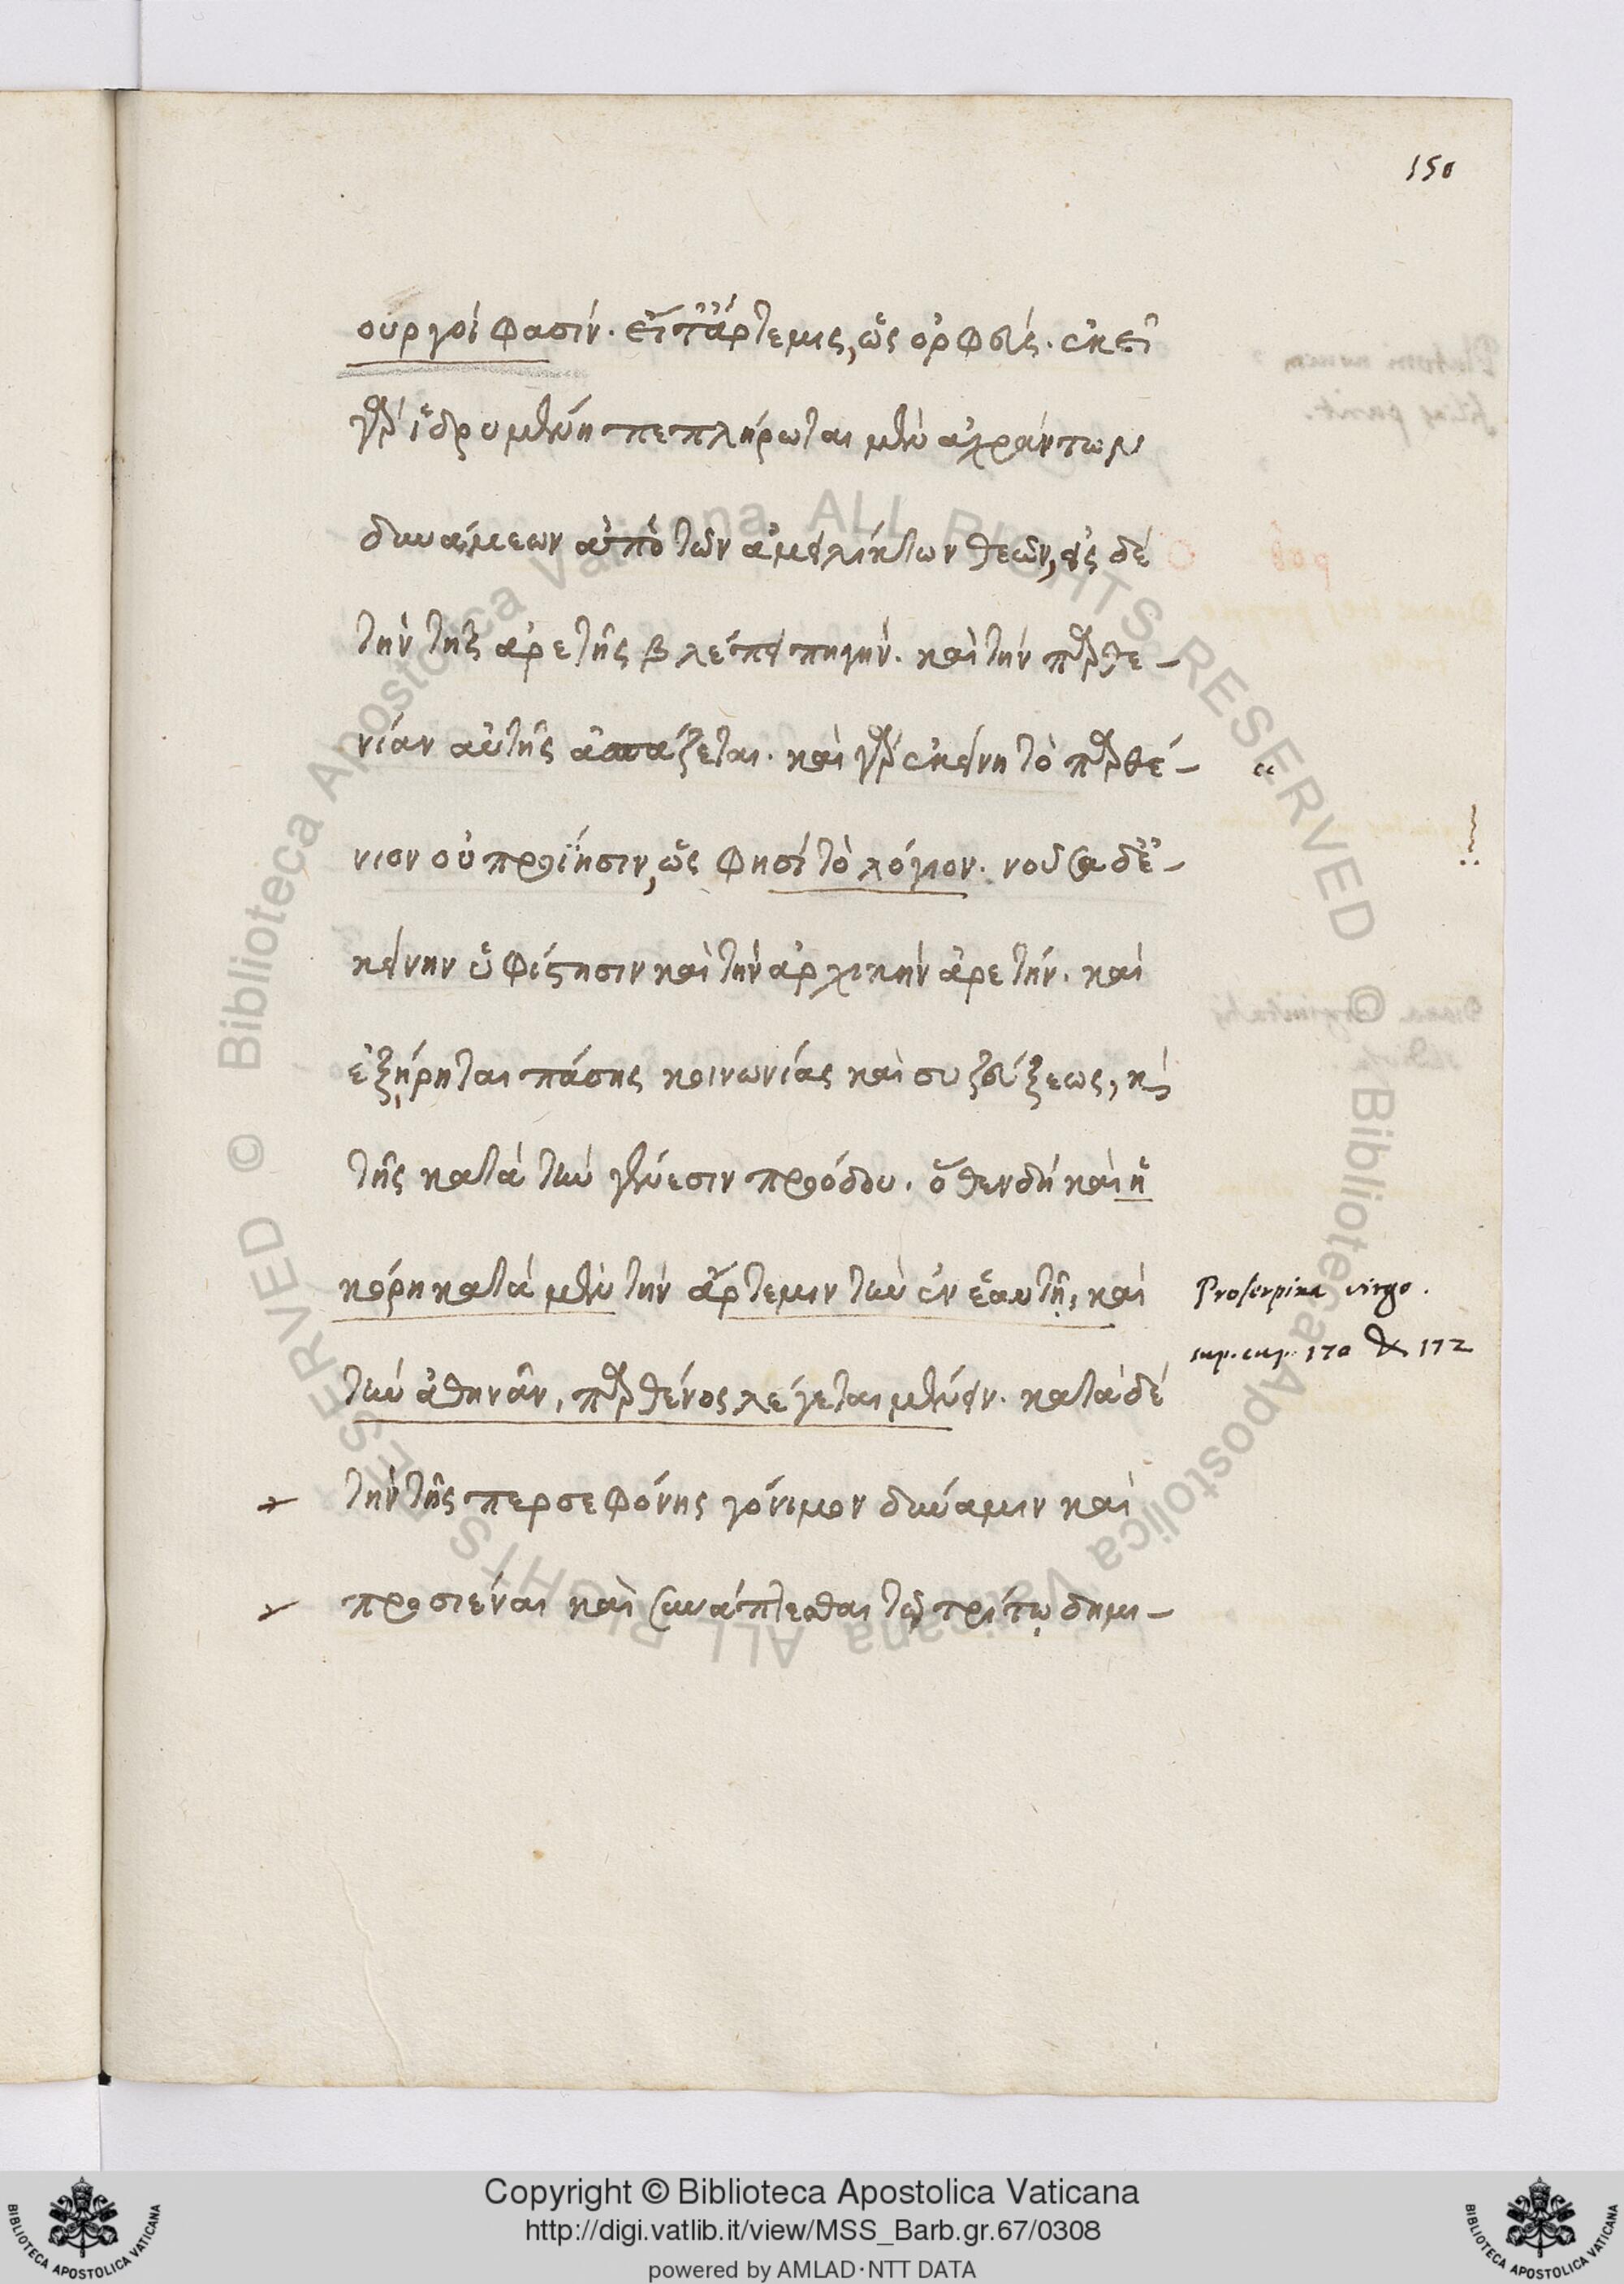 150
ουργοί φασίν. εἴτ' ἄρτεμις, ὡς ὀρφεύς. ἐκεῖ
γὰρ ἱδρυμένη πεπλήρωται μὲν ἀχράντων
δυνάμεων ἀπὸ τῶν ἀμειλίκτων θεῶν, εἰς δὲ
τὴν τῆς ἀρετῆς βλέπει πηγήν. καὶ τὴν παρθε-
νίαν αὐτῆς ἀσπάζεται. καὶ γὰρ ἐκείνη τὸ παρθέ- “
νιον οὐ προΐησιν, ὥς φησὶ τὸ λόγιον. νοοῦσα δὲ ἐ-
κείνην ὑφίστησιν καὶ τὴν ἀρχικὴν ἀρετήν. καὶ
ἐξῄρηται πάσης κοινωνίας καὶ συζεύξεως, καὶ
τῆς κατὰ τὴν γένεσιν προόδου. ὅθεν δὴ καὶ ἡ
κόρη κατὰ μὲν τὴν ἄρτεμιν τὴν ἐν ἑαυτῇ, καὶ
Proserpina virgo.
sup. cap. 170 & 172
τὴν ἀθηνᾶν, παρθένος λέγεται μένειν. κατὰ δὲ
τὴν τῆς περσεφόνης γόνιμον δύναμιν καὶ
προσιέναι καὶ συνάπτεσθαι τῷ τρίτῳ δημι-
© Biblioteca Apostolica Vaticana ALL RIGHTS RESERVED © Biblioteca Apostolica Vaticana ALL RIGHTS RESERVED
Copyright © Biblioteca Apostolica Vaticana
http://digi.vatlib.it/view/MSS_Barb.gr.67/0308
powered by AMLAD·NTT DATA
BIBLIOTECA APOSTOLICA VATICANA
BIBLIOTECA APOSTOLICA VATICANA